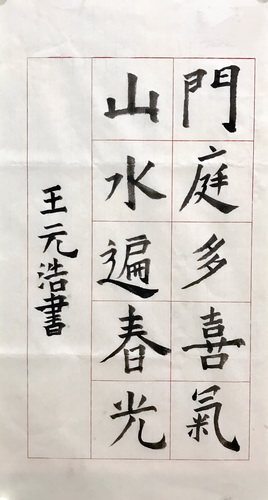 門庭多喜氣
山水遍春光
王元浩書